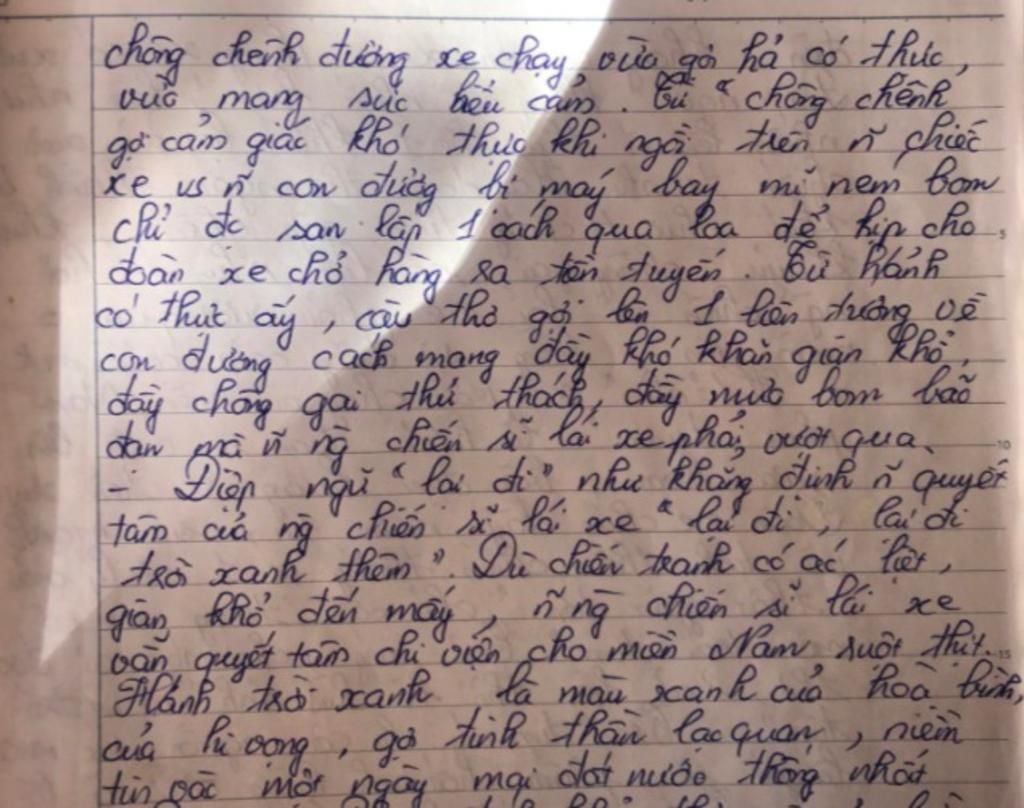 chông chênh đường xe chạy, vừa gợi tả có thực,
vừa mang sức biểu cảm. Từ "chông chênh
gợi cảm giác khó thực khi ngồi trên ~ñ chiếc
xe vs ~ñ con đường bị máy bay mĩ ném bom
chỉ đc san lấp 1 cách qua loa để kịp cho
đoàn xe chở hàng ra tiền tuyến. Từ h/ảnh
có thực ấy, câu thơ gợi lên 1 liên tưởng về
con đường cách mạng đầy khó khăn gian khổ,
đầy chông gai thử thách, đầy mưa bom bão
đạn mà ~ñ ng chiến sĩ lái xe phải vượt qua.
- Điệp ngữ "lại đi" như khẳng định ~ñ quyết
tâm của ng chiến sĩ lái xe "lại đi, lại đi
trời xanh thêm". Dù chiến tranh có ác liệt,
gian khổ đến mấy, ~ñ ng chiến sĩ lái xe
vẫn quyết tâm chi viện cho miền Nam ruột thịt.
H/ảnh trời xanh là màu xanh của hoà bình,
của hi vọng, gợi tinh thần lạc quan, niềm
tin vào một ngày mai đất nước thống nhất